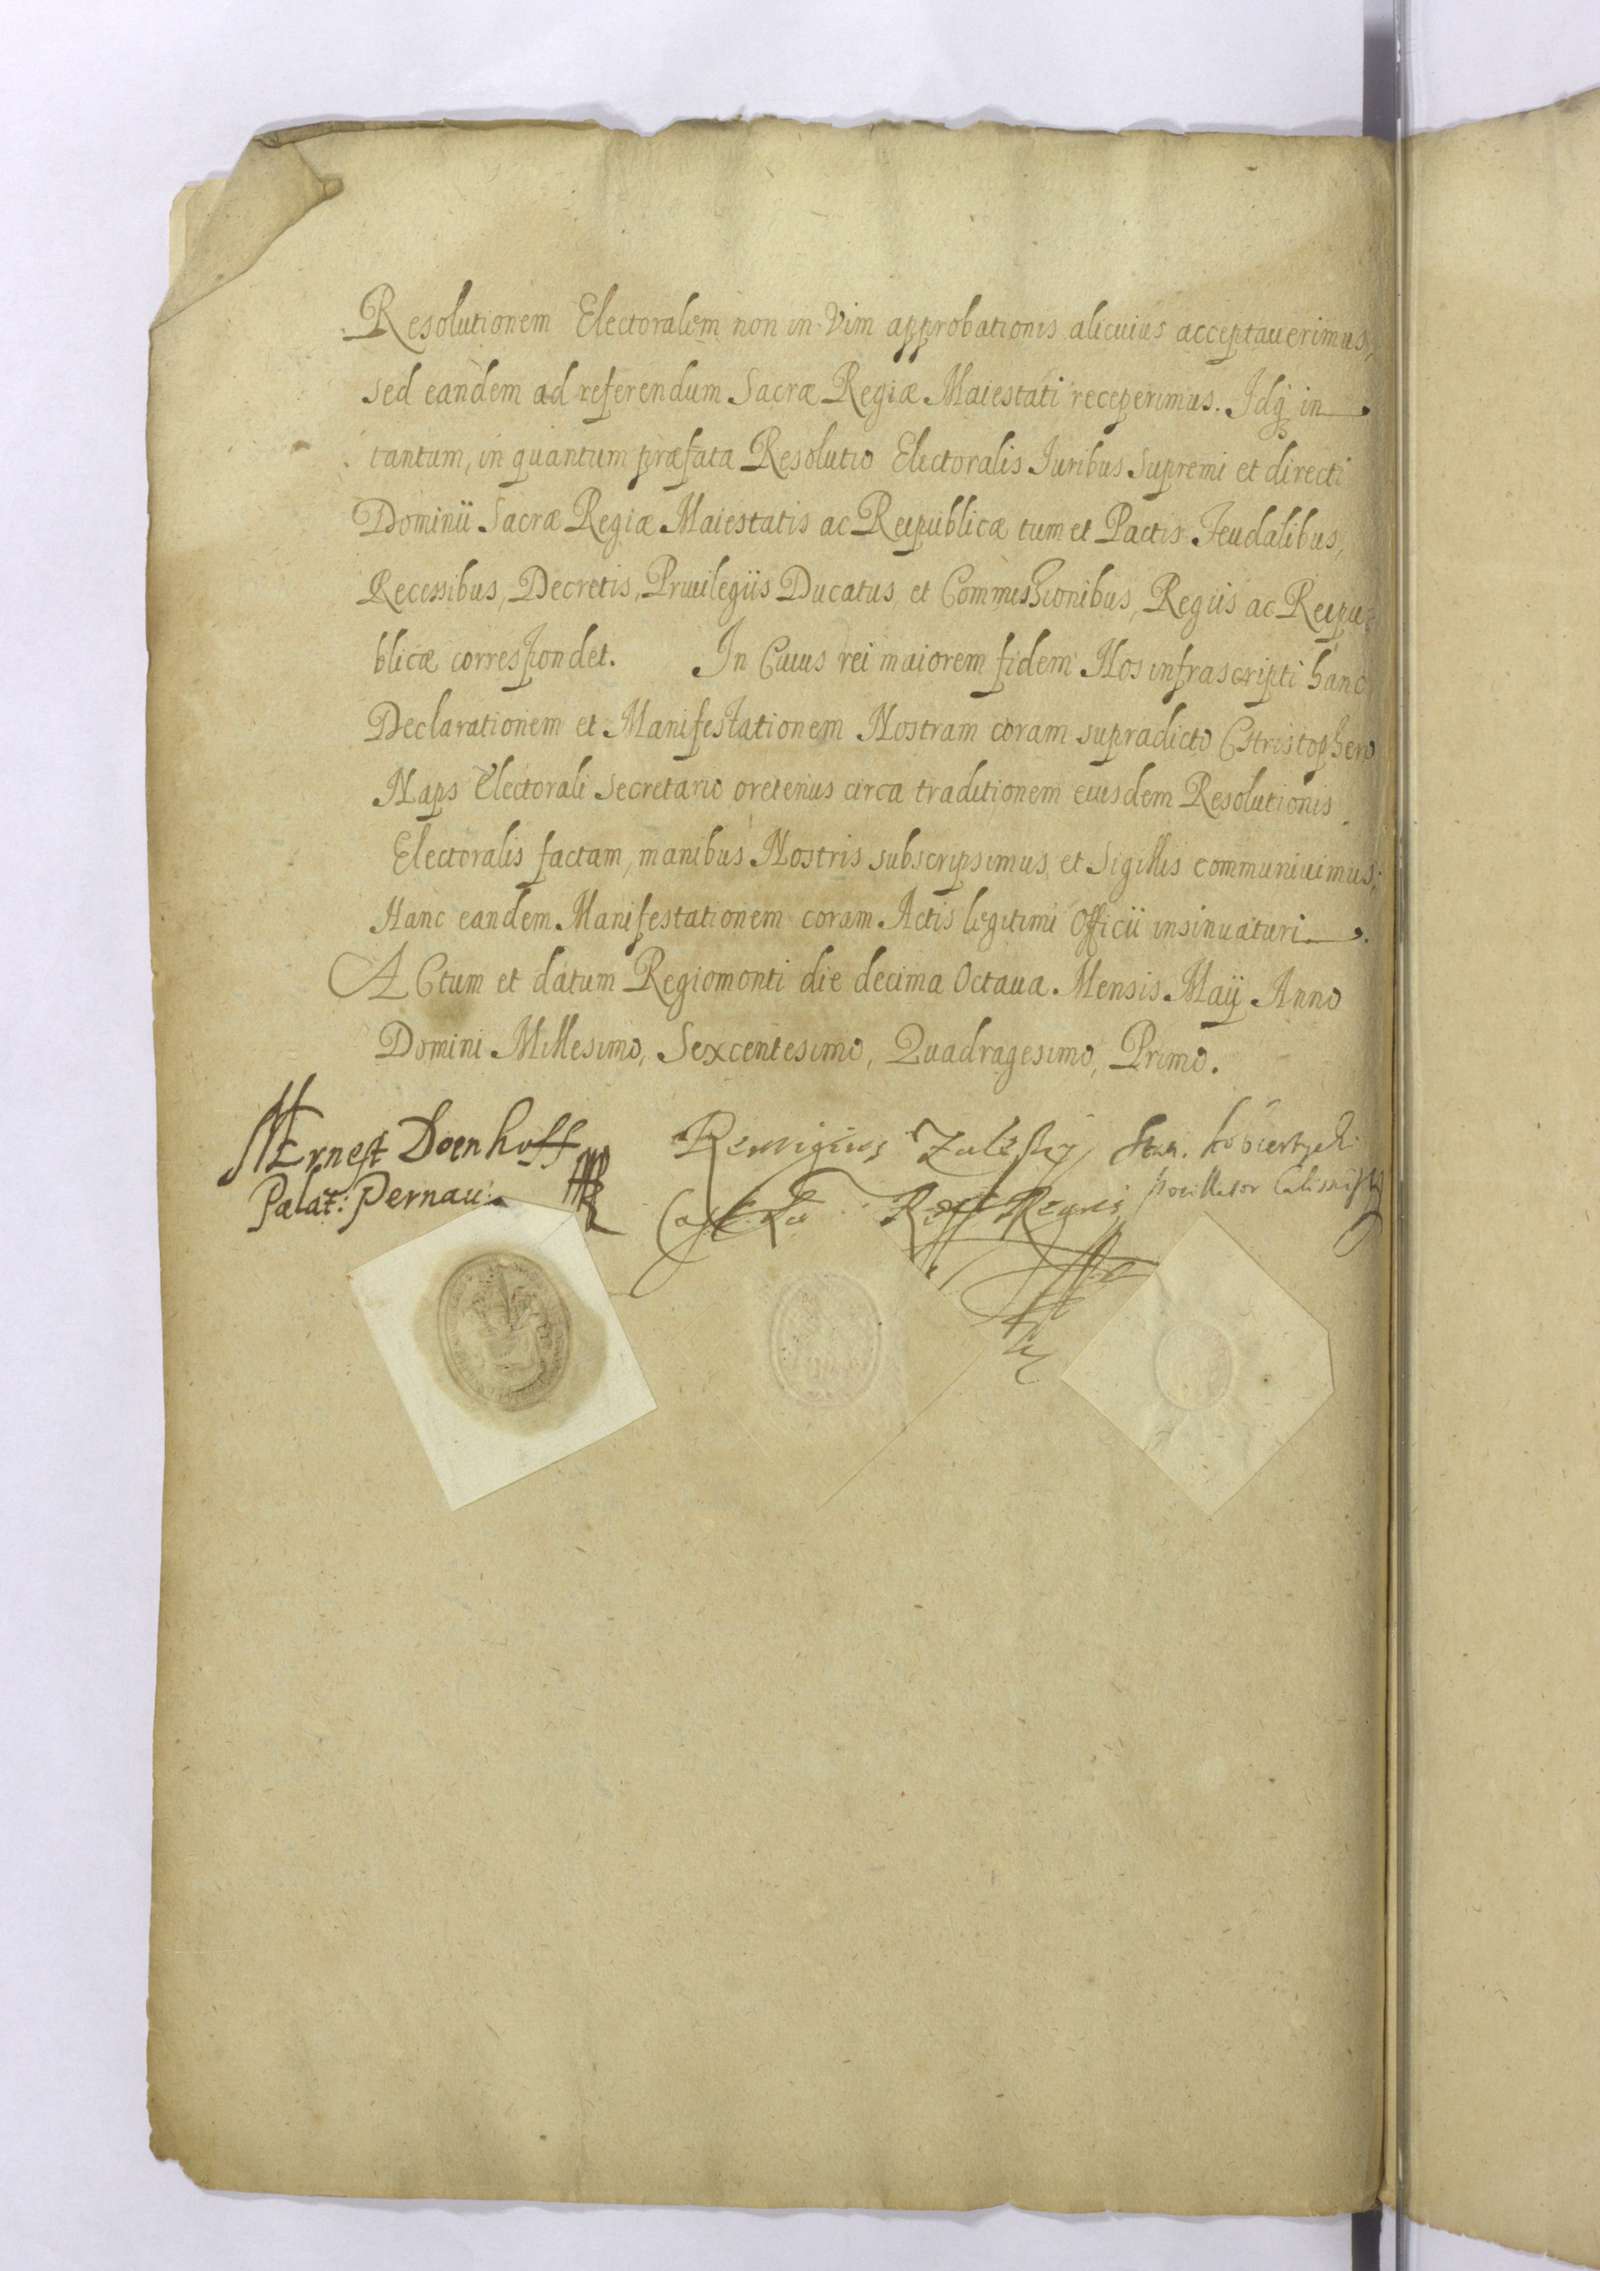 Resolutionem Electoralem non in Vim approbationis alicuius acceptauerimus,
sed eandem ad referendum Sacræ Regiæ Maiestati receperimus. Idq in
tantum, in quantum præfata Resolutio Electoralis Iuribus Supremi et directi
Dominii Sacræ Regiæ Maiestatis ac Reipublicæ tum et Pactis Feudalibus,
Recessibus, Decretis, Priuilegiis Ducatus, et Commissionibus, Regiis ac Reipu
blicæ correspondet. In Cuius rei maiorem fidem Nos infrascripti hanc
Declarationem et Manifestationem Nostram coram supradicto Christophero
Naps Electorali Secretario oretenus circa traditionem eiusdem Resolutionis
Electoralis factam, manibus Nostris subscripsimus, et Sigillis communiuimus,
Hanc eandem Manifestationem coram Actis legitimi Officii insinuaturi.
ACtum et datum Regiomonti die decima Octaua Mensis Maij Anno
Domini Millesimo, Sexcentesimo, Quadragesimo, Primo.
Ernest Doenhoff
Palat: Pernau:
Remigius Zaleský
Stan. Kobierzycki
pocillator Calissis